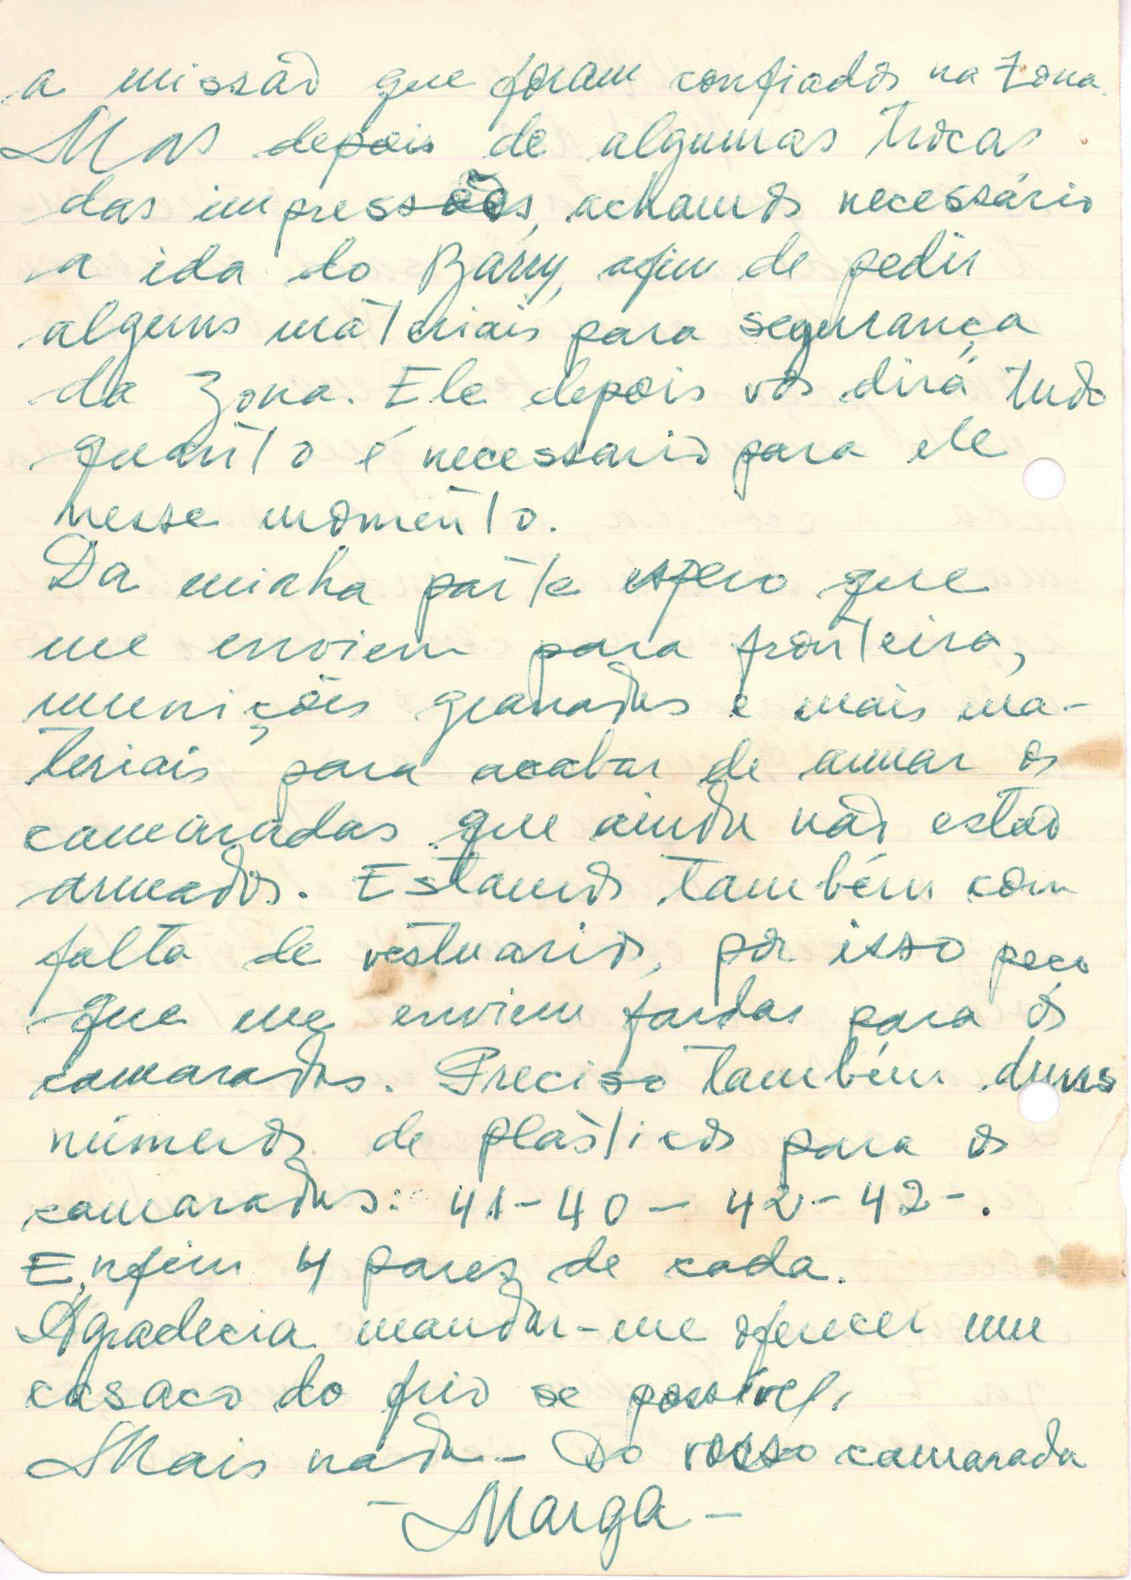 a missão que foram confiados na Zona.
Mas depois de algumas trocas
das impressões, achamos necessário
a ida do Barry, afim de pedir
alguns materiais para segurança
da Zona. Ele depois vos dirá tudo
quanto é necessario para ele
nesse momento.
Da minha parte espero que
me enviem para fronteira,
munições granadas e mais ma-
teriais para acabar de armar os
camaradas que ainda não estão
armados. Estamos também com
falta de vestuarios, por isso peço
que me enviem fardas para os
camaradas. Preciso também duns
números de plásticos para os
camaradas: 41-40-42-42-.
Enfim 4 pares de cada.
Agradecia mandar-me oferecer um
casaco do frio se possível,
Mais nada - Do vosso camarada
- Marga -